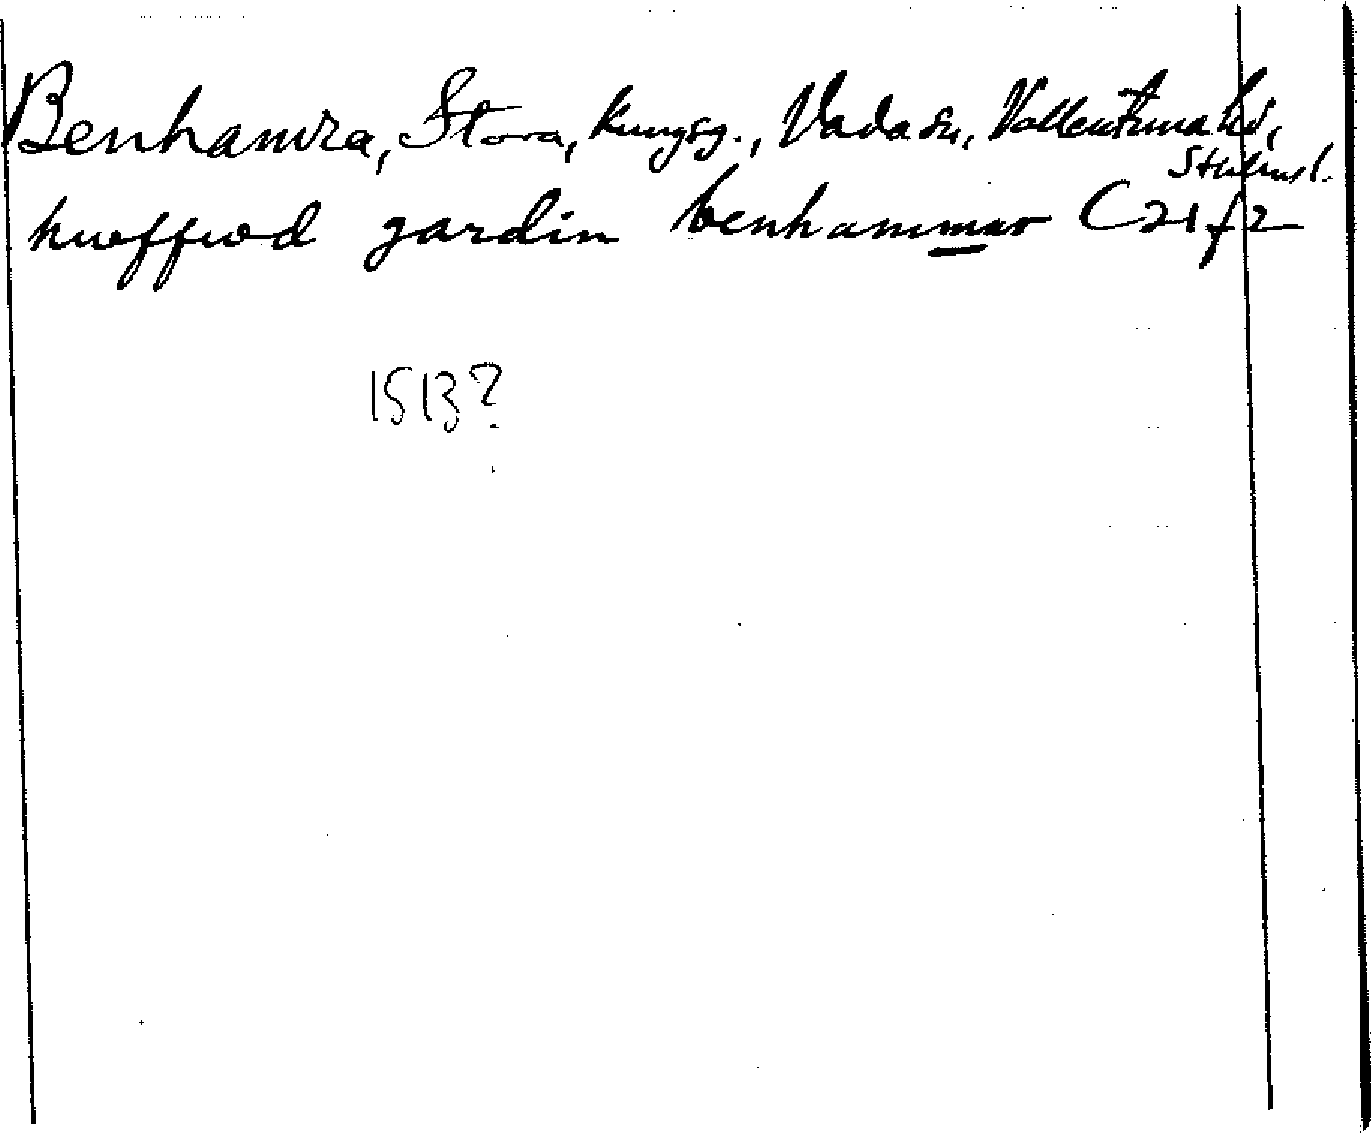 Benhamra, Stora, kungsg., Vada sn, Vallentuna hd,
Sthlms l.
hwffwd gardin benhammar C21 f 2
1513?